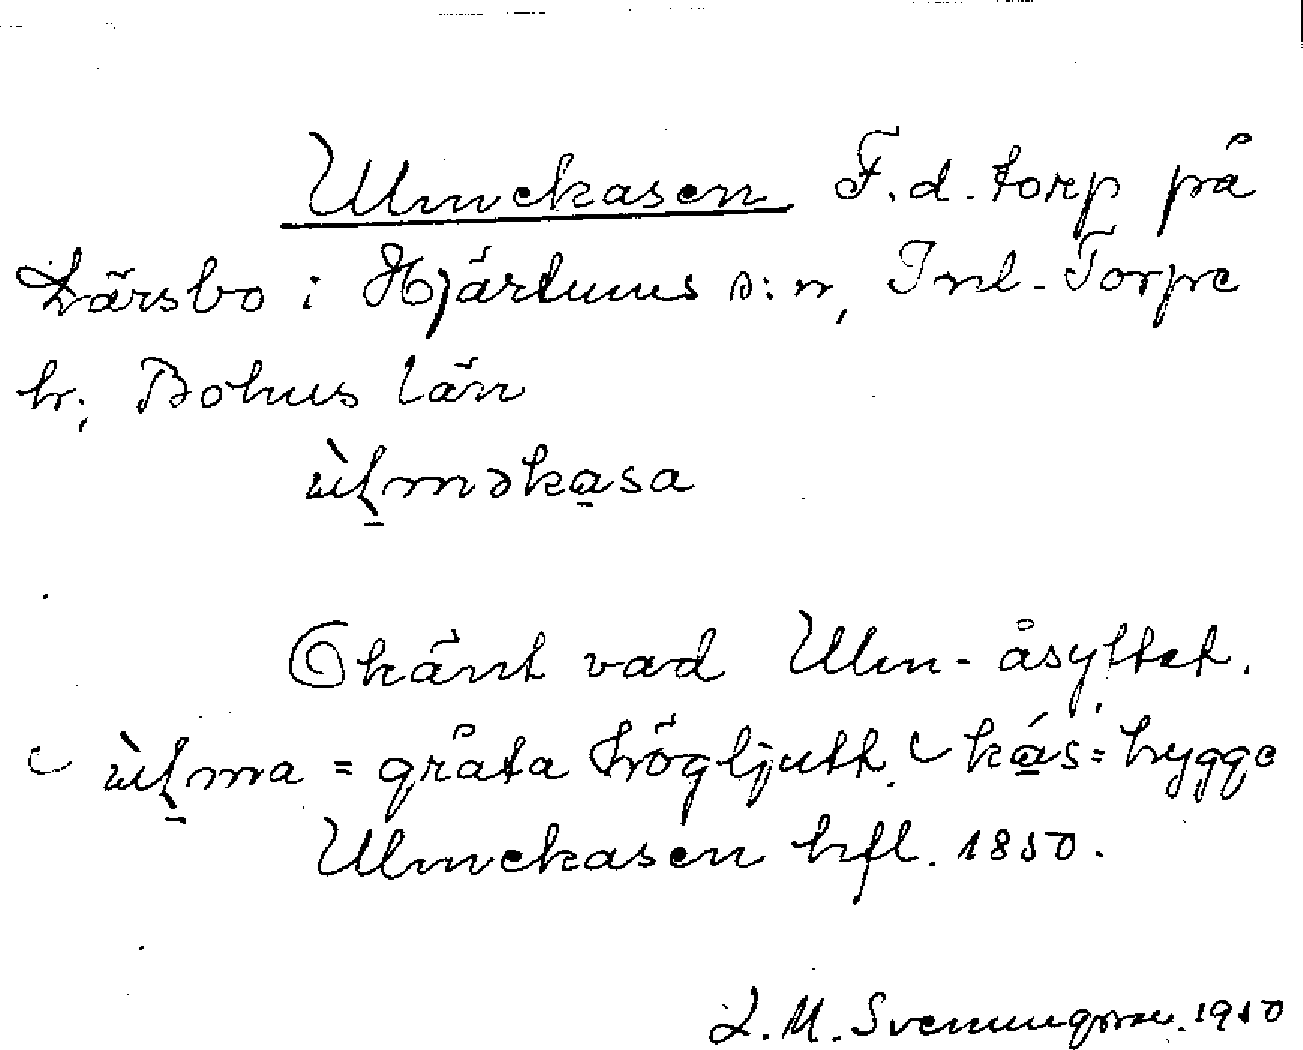 Ulmekasen F.d. torp på
Därsbo i Hjärtums s:n, Inl-Torpe
hr, Bohus län
ùḻməka̱sa
Okänt vad Ulm- åsyftet.
ùḻma = gråta högljutt. ká̱s = hygge
Ulmekasen hfl. 1850.
L.M. Svenungsson. 1910